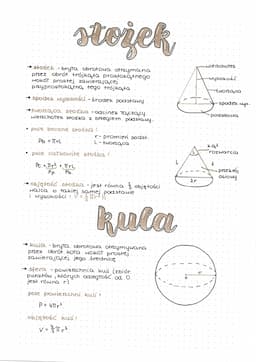 stożek
→ stożek - bryła obrotowa otrzymana
przez obrót trójkąta prostokątnego
wokół prostej zawierającej
przyprostokątną tego trójkąta
→ spodek wysokości - środek podstawy
→ tworząca stożka - odcinek łączący
wierzchołek stożka z brzegiem podstawy
• pole boczne stożka:
Pb = πrL
r - promień podst.
L - tworząca
• pole całkowite stożka:
Pc = πr² + πrL
Pp Pb
→ objętość stożka - jest równa ⅓ objętości
walca o takiej samej podstawie
i wysokości: V = ⅓πr²h
wierzchołek
wysokość
tworząca
spodek wys.
podstawa
kąt
rozwarcia
L
przekrój
osiowy
kula
→ kula - bryła obrotowa otrzymywana
przez obrót koła wokół prostej
zawierającej jego średnicę
→ sfera - powierzchnia kuli (zbiór
punktów, których odległość od O
jest równa r)
pole powierzchni kuli:
P = 4πr²
objętość kuli:
V = 4/3 πr³
r